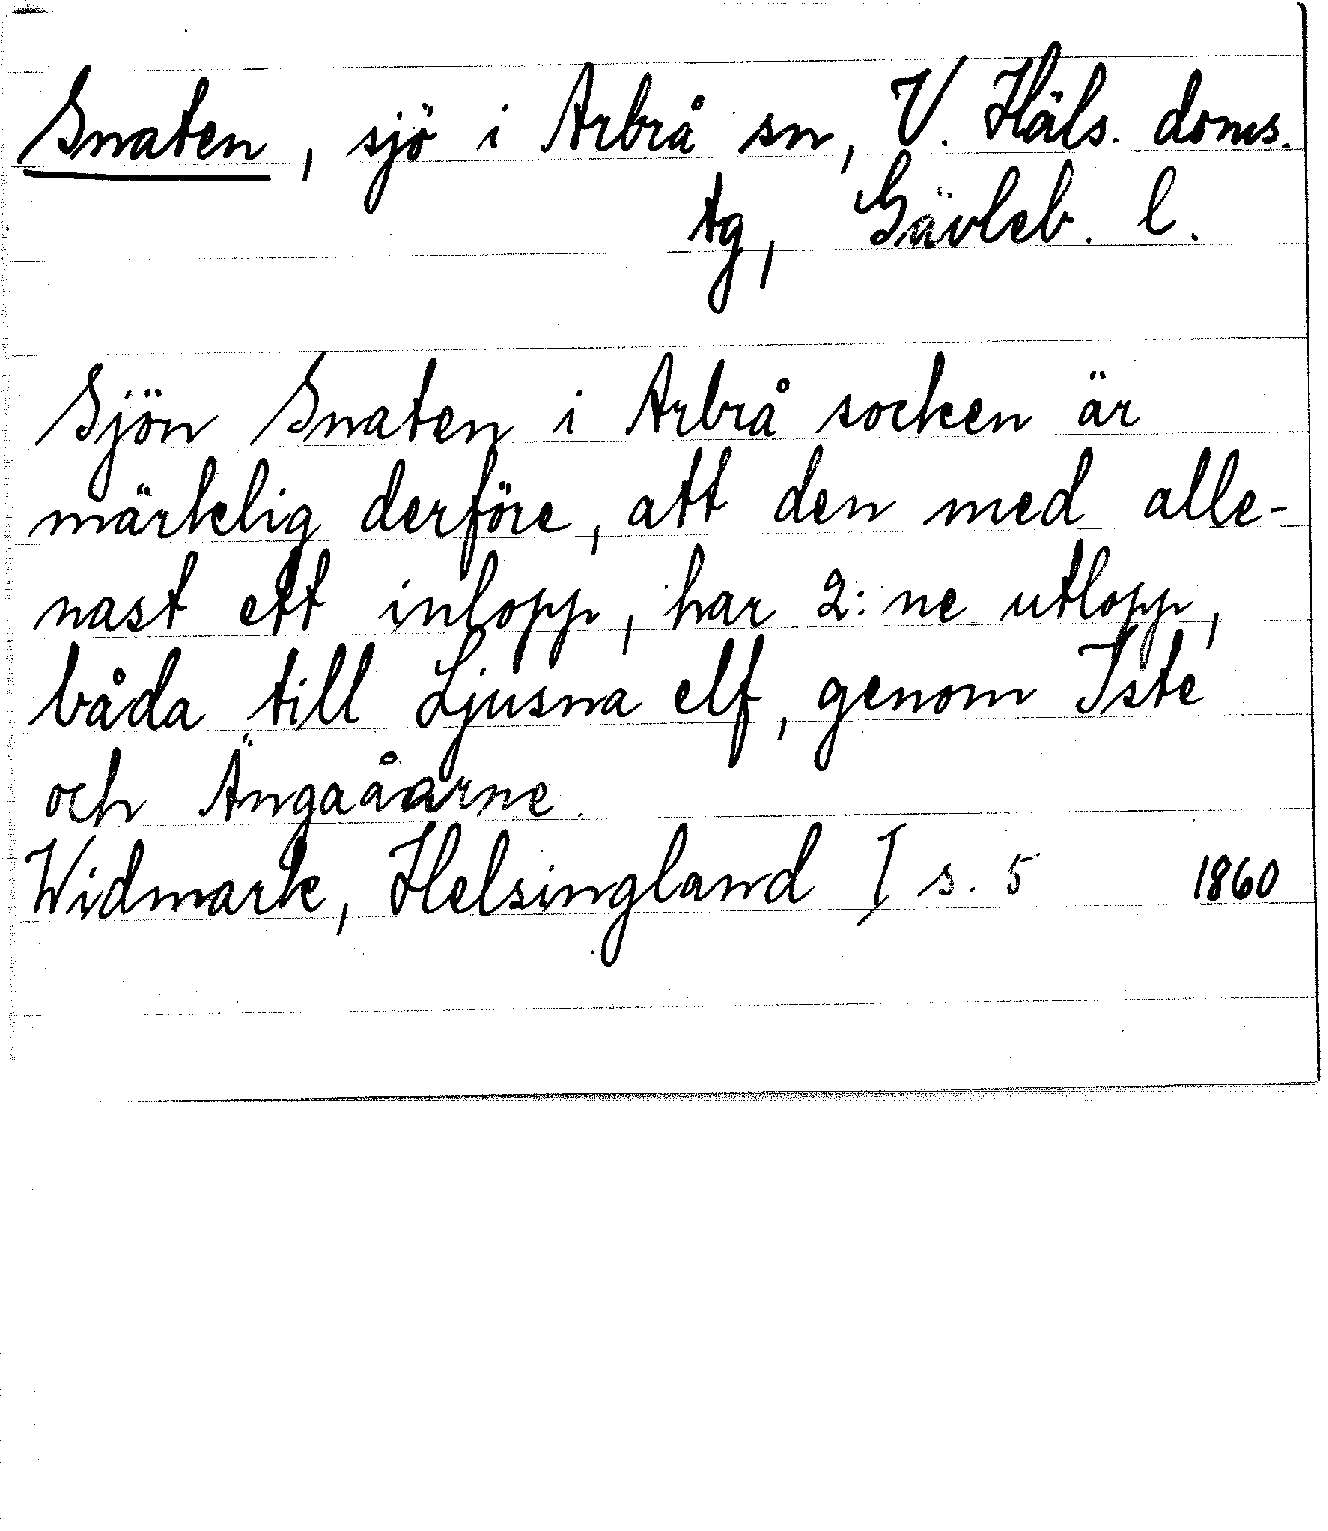 Snaten, sjö i Arbrå sn, V. Häls. doms.
tg, Gävleb. l.
Sjön Snaten i Arbrå socken är
märkelig derföre, att den med alle-
nast ett inlopp, har 2:ne utlopp,
båda till Ljusna elf, genom Iste
och Ängaåarne.
Widmark, Helsingland I s. 5 1860